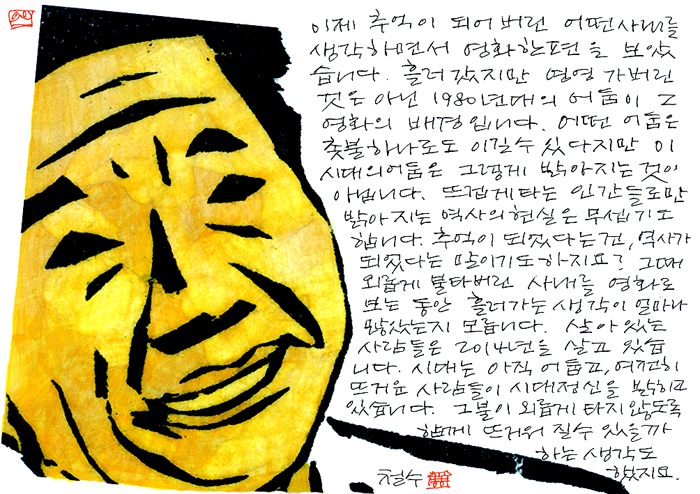 이제 추억이 되어버린 어떤 사내를
생각하면서 영화 한편을 보았
습니다. 흘러갔지만 영영 가버린
것은 아닌 1980년대의 어둠이 그
영화의 배경입니다. 어떤 어둠은
촛불하나로도 이길수 있다지만 이
시대의 어둠은 그렇게 밝아지는 것이
아닙니다. 뜨겁게 타는 인간들로만
밝아지는 역사의 현실은 무섭기도
합니다. 추억이 되었다는건, 역사가
되었다는 말이기도 하지요? 그때
외롭게 불타버린 사내를 영화로
보는 동안 흘러가는 생각이 얼마나
많았는지 모릅니다. 살아있는
사람들은 2014년을 살고 있습
니다. 시대는 아직 어둡고, 여전히
뜨거운 사람들이 시대정신을 밝히고
있습니다. 그불이 외롭게 타지 않도록
함께 뜨거워 질수 있을까
하는 생각도
했지요.
철수